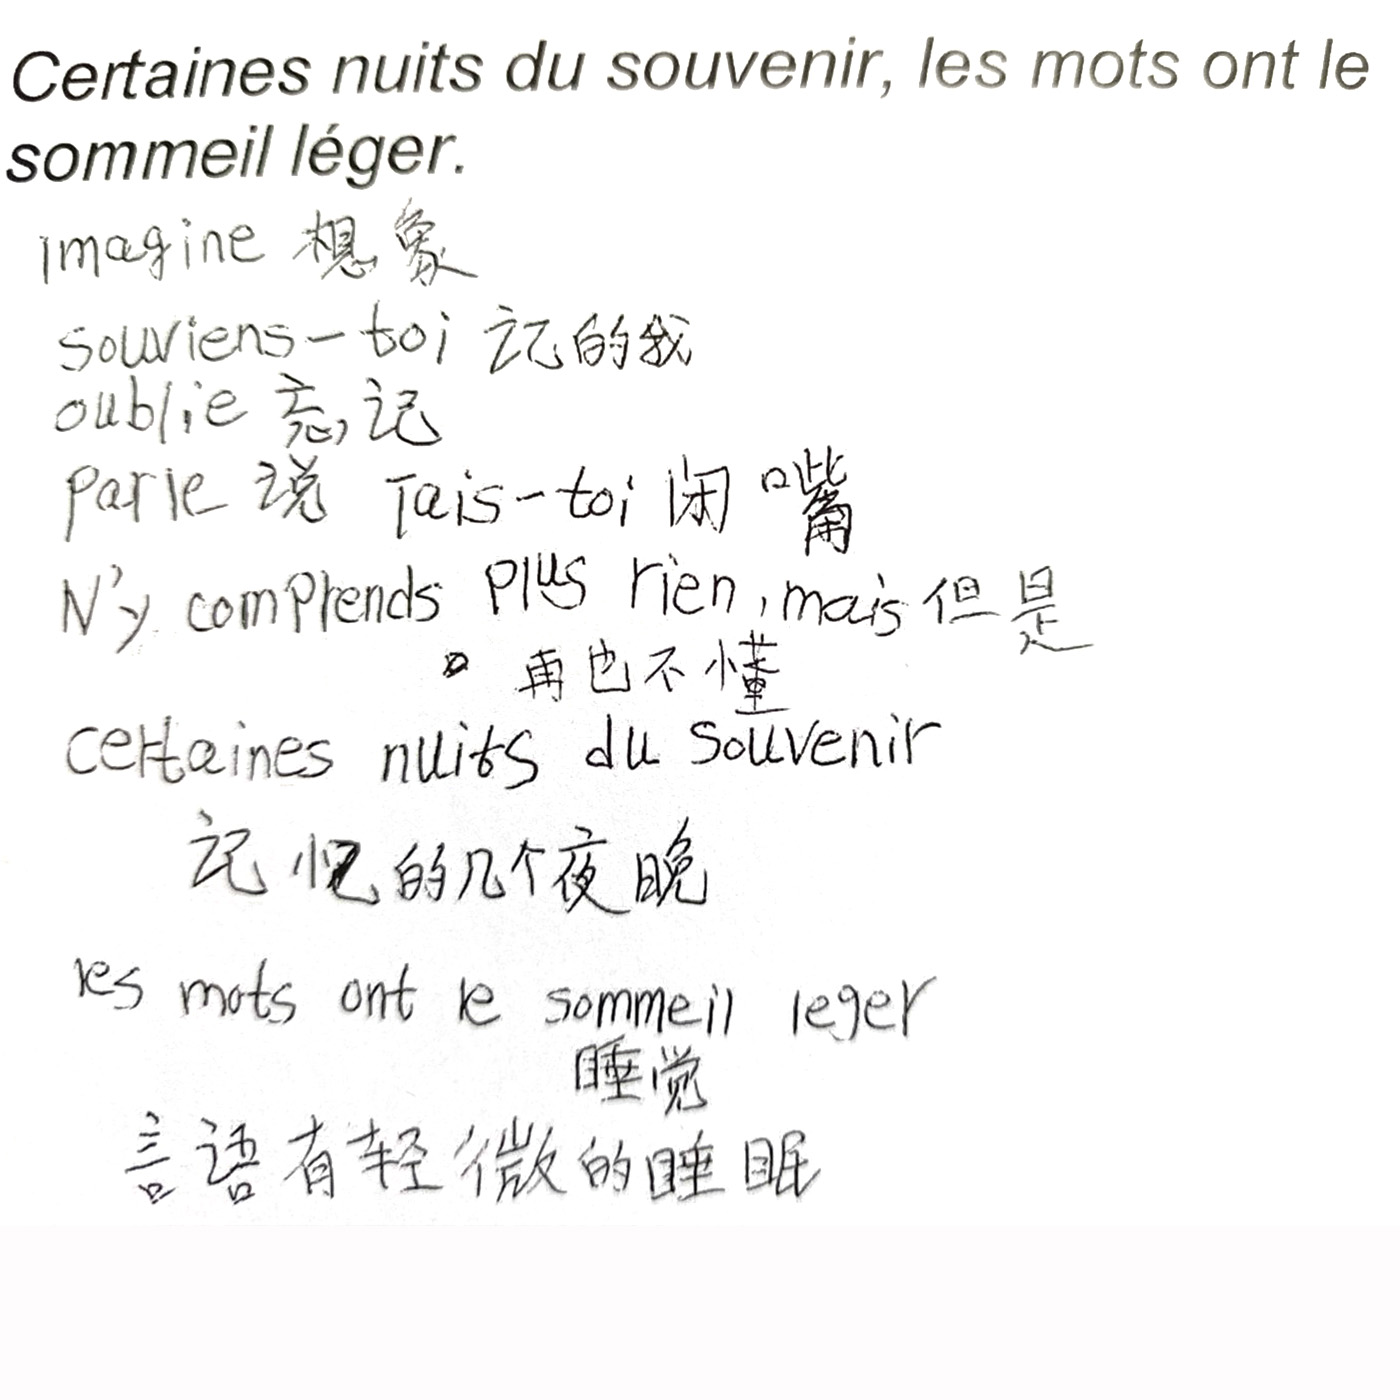 Certaines nuits du souvenir, les mots ont le
sommeil léger.
imagine 想象
souviens-toi 记的我
oublie 忘记
parle 说 Tais-toi 闭嘴
N'y comprends plus rien, mais 但是
再也不懂
certaines nuits du souvenir
记忆的几个夜晚
les mots ont le sommeil leger
睡觉
言语有轻微的睡眠